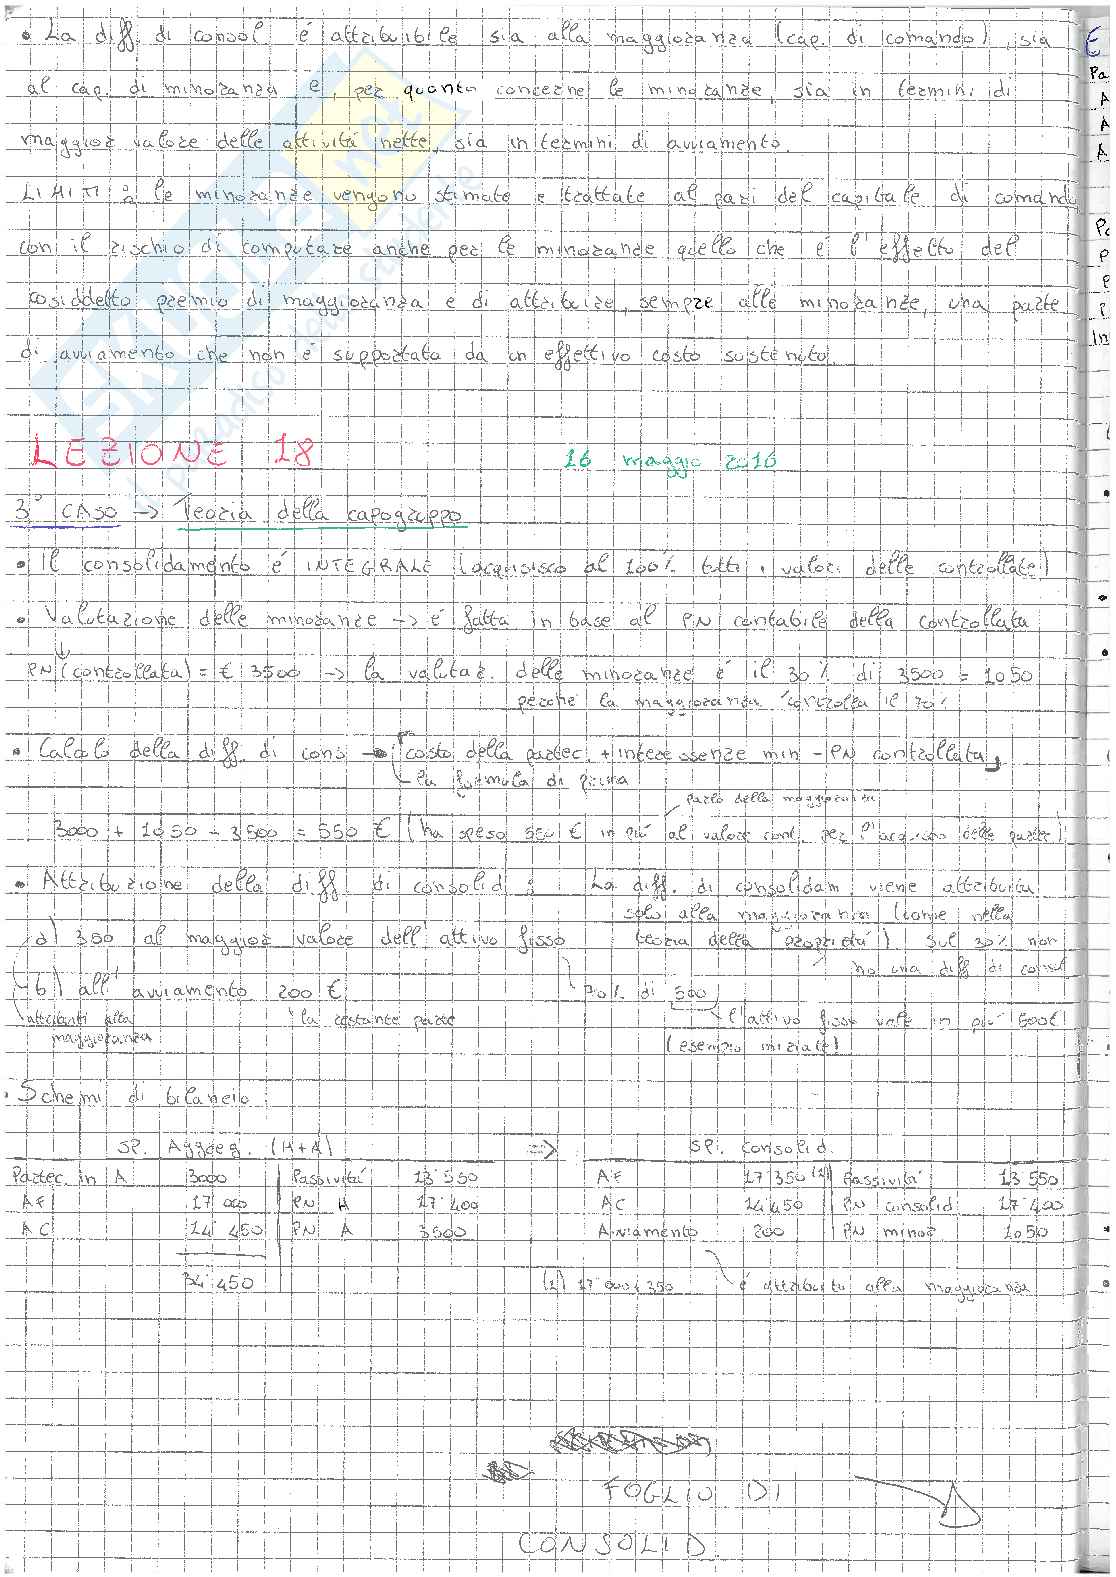 • La diff. di consol é attribuibile sia alla maggioranza (cap. di comando), sia
al cap. di minoranza e, per quanto concerne le minoranze, sia in termini di
maggior valore delle attivitá nette, sia in termini di avviamento.
LIMITI : le minoranze vengono stimate e trattate al pari del capitale di comand
con il rischio di computare anche per le minoranze quello che é l'effetto del
cosiddetto premio di maggioranza e di attribuire, sempre alle minoranze, una parte
di avviamento che non é supportata da un effettivo costo sostenuto.
LEZIONE 18 16 maggio 2016
3° CASO -> Teoria della capogruppo
• Il consolidamento é INTEGRALE (acquisisco al 100% tutti i valori delle controllate)
• Valutazione delle minoranze -> é fatta in base al PN contabile della controllata
PN (controllata) = € 3500 -> la valutaz. delle minoranze é il 30% di 3500 = 1050
perché la maggioranza controlla il 70%
• Calcolo della diff. di cons -> costo della partec. + interessenze min - PN controllata
la formula di prima
parlo della maggioranza
3000 + 1050 - 3500 = 550 € (ha speso 550 € in piú al valore cont. per l'acquisto delle partec)
• Attribuzione della diff. di consolid : La diff. di consolidam. viene attribuita
solo alla maggioranza (come nella
a) 350 al maggior valore dell'attivo fisso teoria della proprietá). Sul 30% non
ho una diff di consol
b) all'avviamento 200 € 70% di 500
attribuiti alla maggioranza la restante parte l'attivo fisso vale in piú 500€
(esempio iniziale)
• Schemi di bilancio
SP. Aggreg. (H+A) => SP. Consolid.
Partec. in A 3000 Passivitá 13 550 AF 17 350 (1) Passivitá 13 550
AF 17 000 PN H 17 400 AC 14 450 PN consolid 17 400
AC 14 450 PN A 3500 Avviamento 200 PN minor 1050
34 450 (1) 17 000 + 350 é attribuito alla maggioranza
FOGLIO DI
CONSOLID.